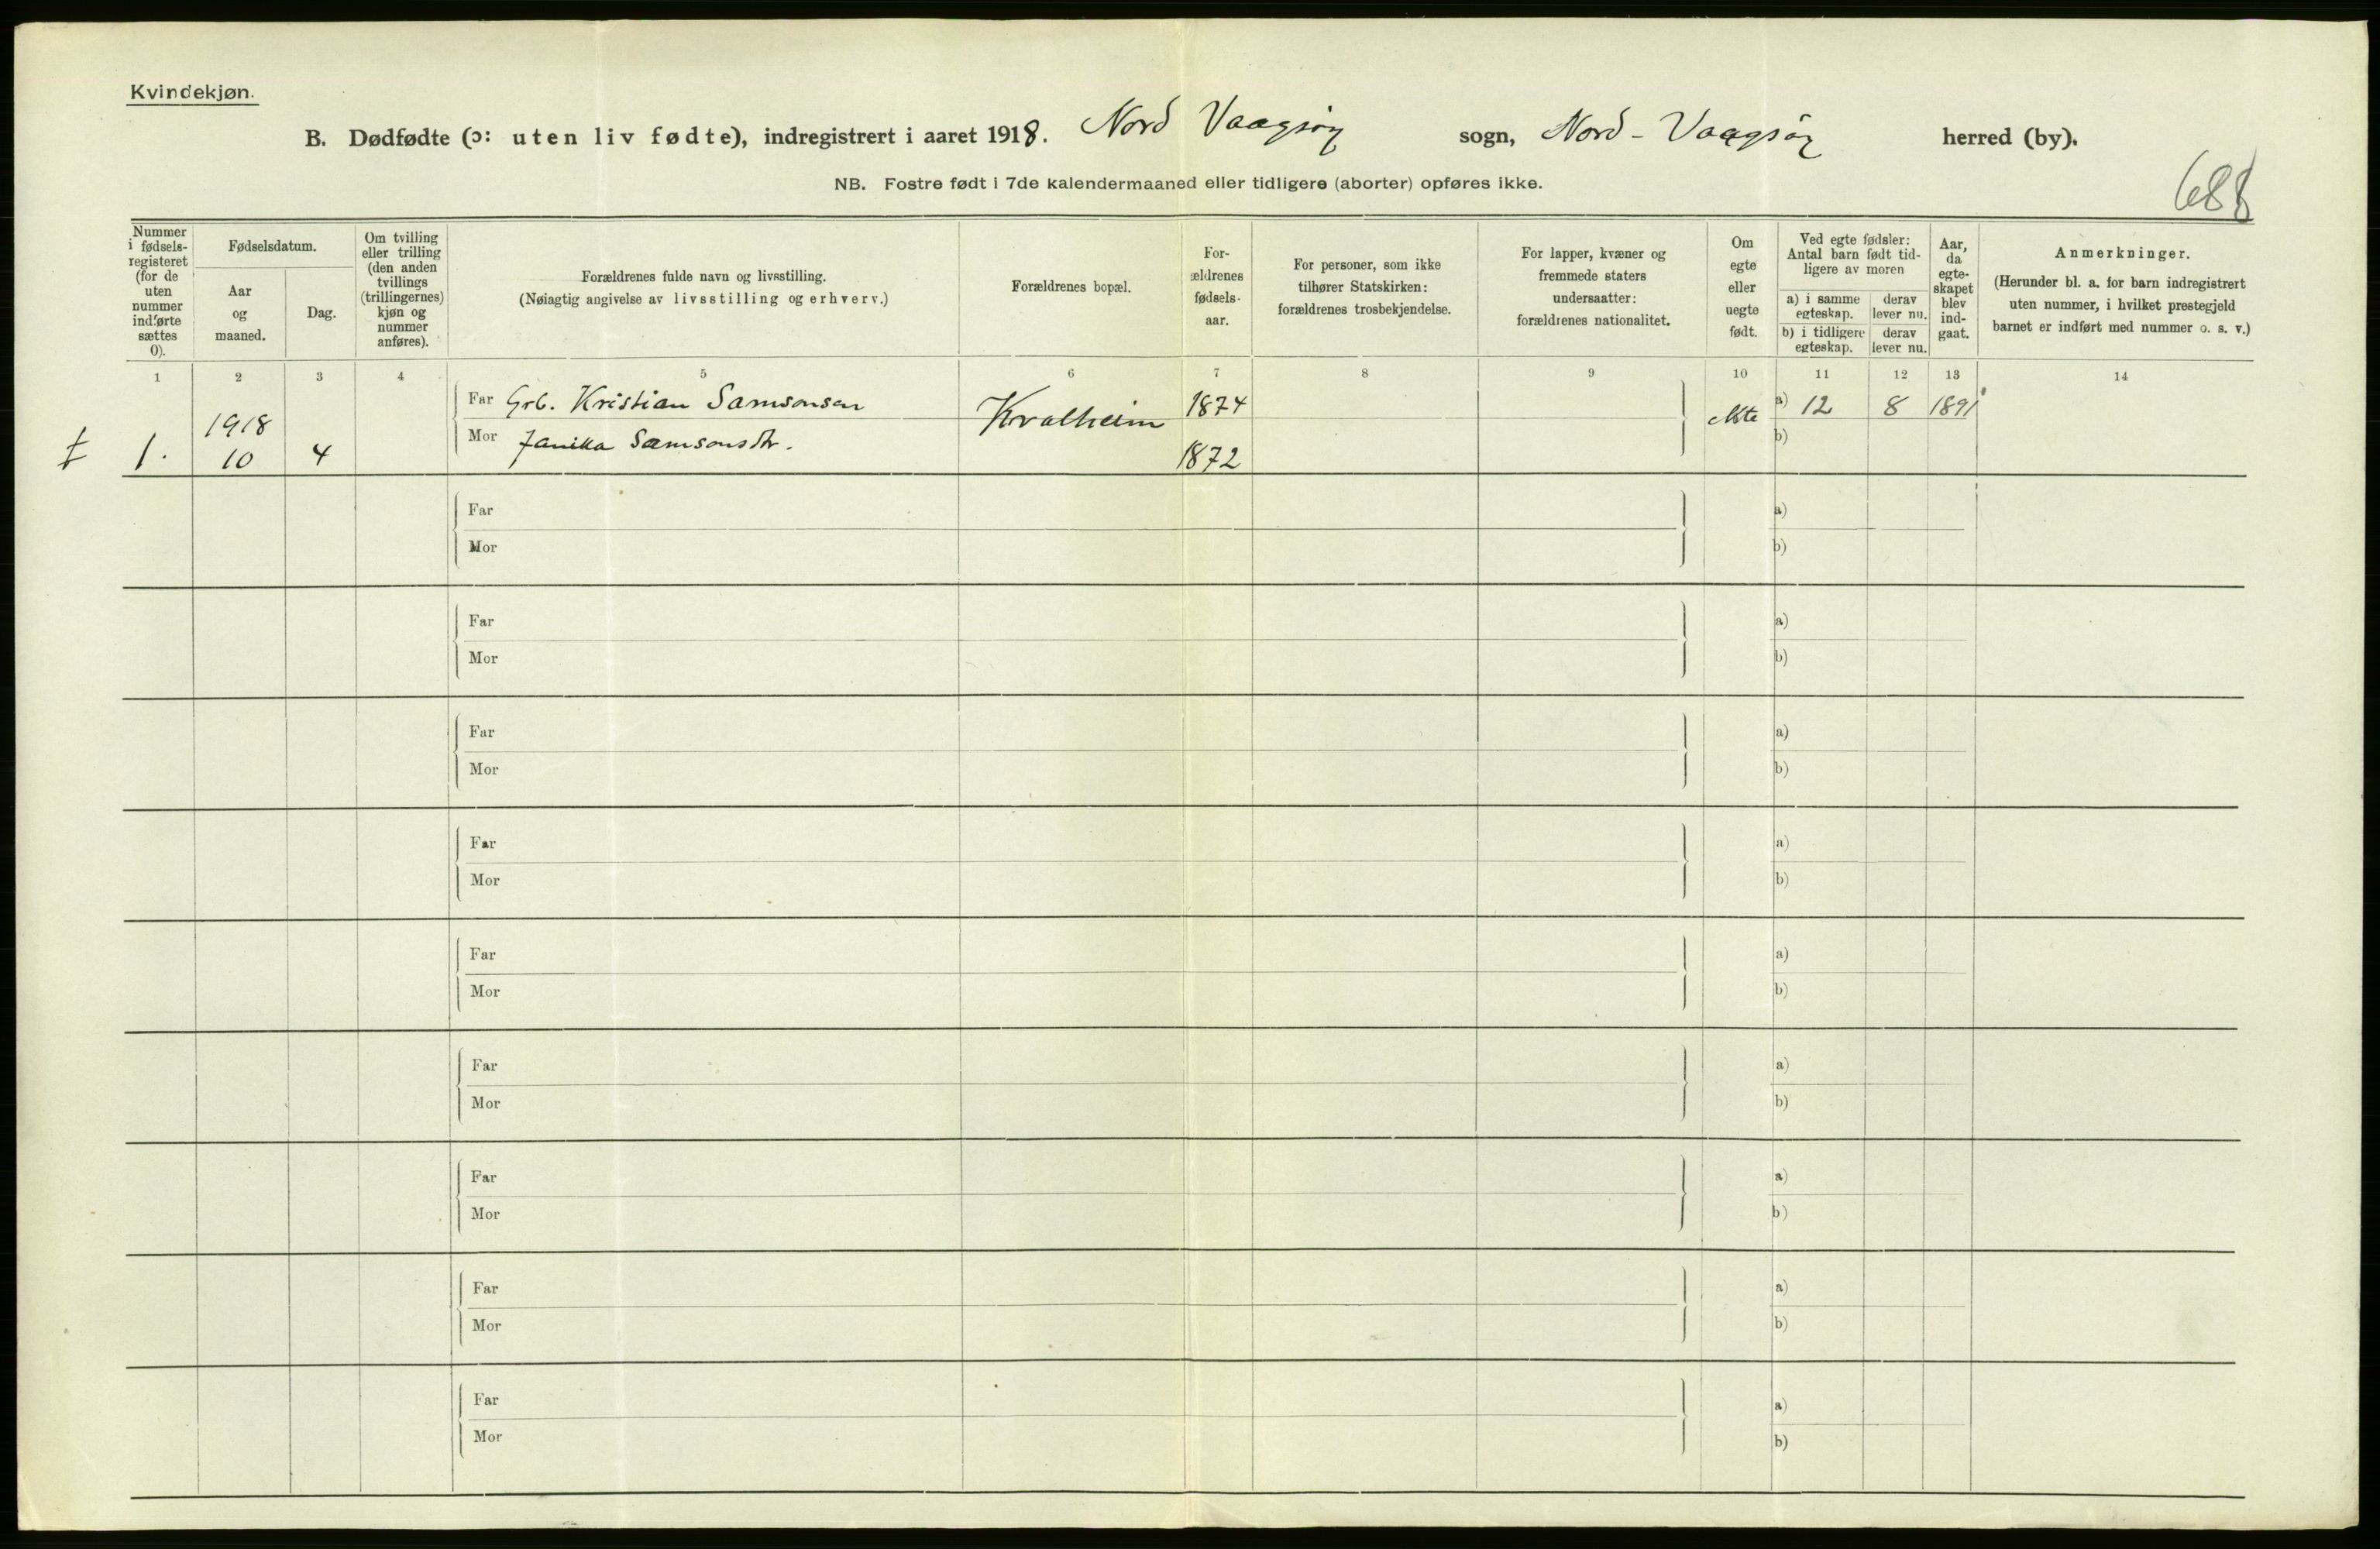 Kvindekjøn.
B. Dødfødte (ɔ: uten liv fødte), indregistrert i aaret 1918. Nord Vaagsøy sogn, Nord-Vaagsøy herred (by).
NB. Fostre født i 7de kalendermaaned eller tidligere (aborter) opføres ikke.
688
Nummer
i fødsels-
registeret
(for de
uten
nummer
indførte
sættes
0).
Fødselsdatum.
Aar
og
maaned.
Dag.
Om tvilling
eller trilling
(den anden
tvillings
(trillingernes)
kjøn og
nummer
anføres).
Forældrenes fulde navn og livsstilling.
(Nøiagtig angivelse av livsstilling og erhverv.)
Forældrenes bopæl.
For-
ældrenes
fødsels-
aar.
For personer, som ikke
tilhører Statskirken:
forældrenes trosbekjendelse.
For lapper, kvæner og
fremmede staters
undersaatter:
forældrenes nationalitet.
Om
egte
eller
uegte
født.
Ved egte fødsler:
Antal barn født tid-
ligere av moren
a) i samme
egteskap.
derav
lever nu.
b) i tidligere
egteskap.
derav
lever nu.
Aar,
da
egte-
skapet
blev
ind-
gaat.
Anmerkninger.
(Herunder bl. a. for barn indregistrert
uten nummer, i hvilket prestegjeld
barnet er indført med nummer o. s. v.)
1 2 3 4 5 6 7 8 9 10 11 12 13 14
Far Grb. Kristian Samsonsen Kvalheim 1874 a) 12 8 1891
1. 1918 10 4 Mor Samsons 1872 b)
Far a)
Mor b)
Far a)
Mor b)
Far a)
Mor b)
Far a)
Mor b)
Far a)
Mor b)
Far a)
Mor b)
Far a)
Mor b)
Far a)
Mor b)
Far a)
Mor b)